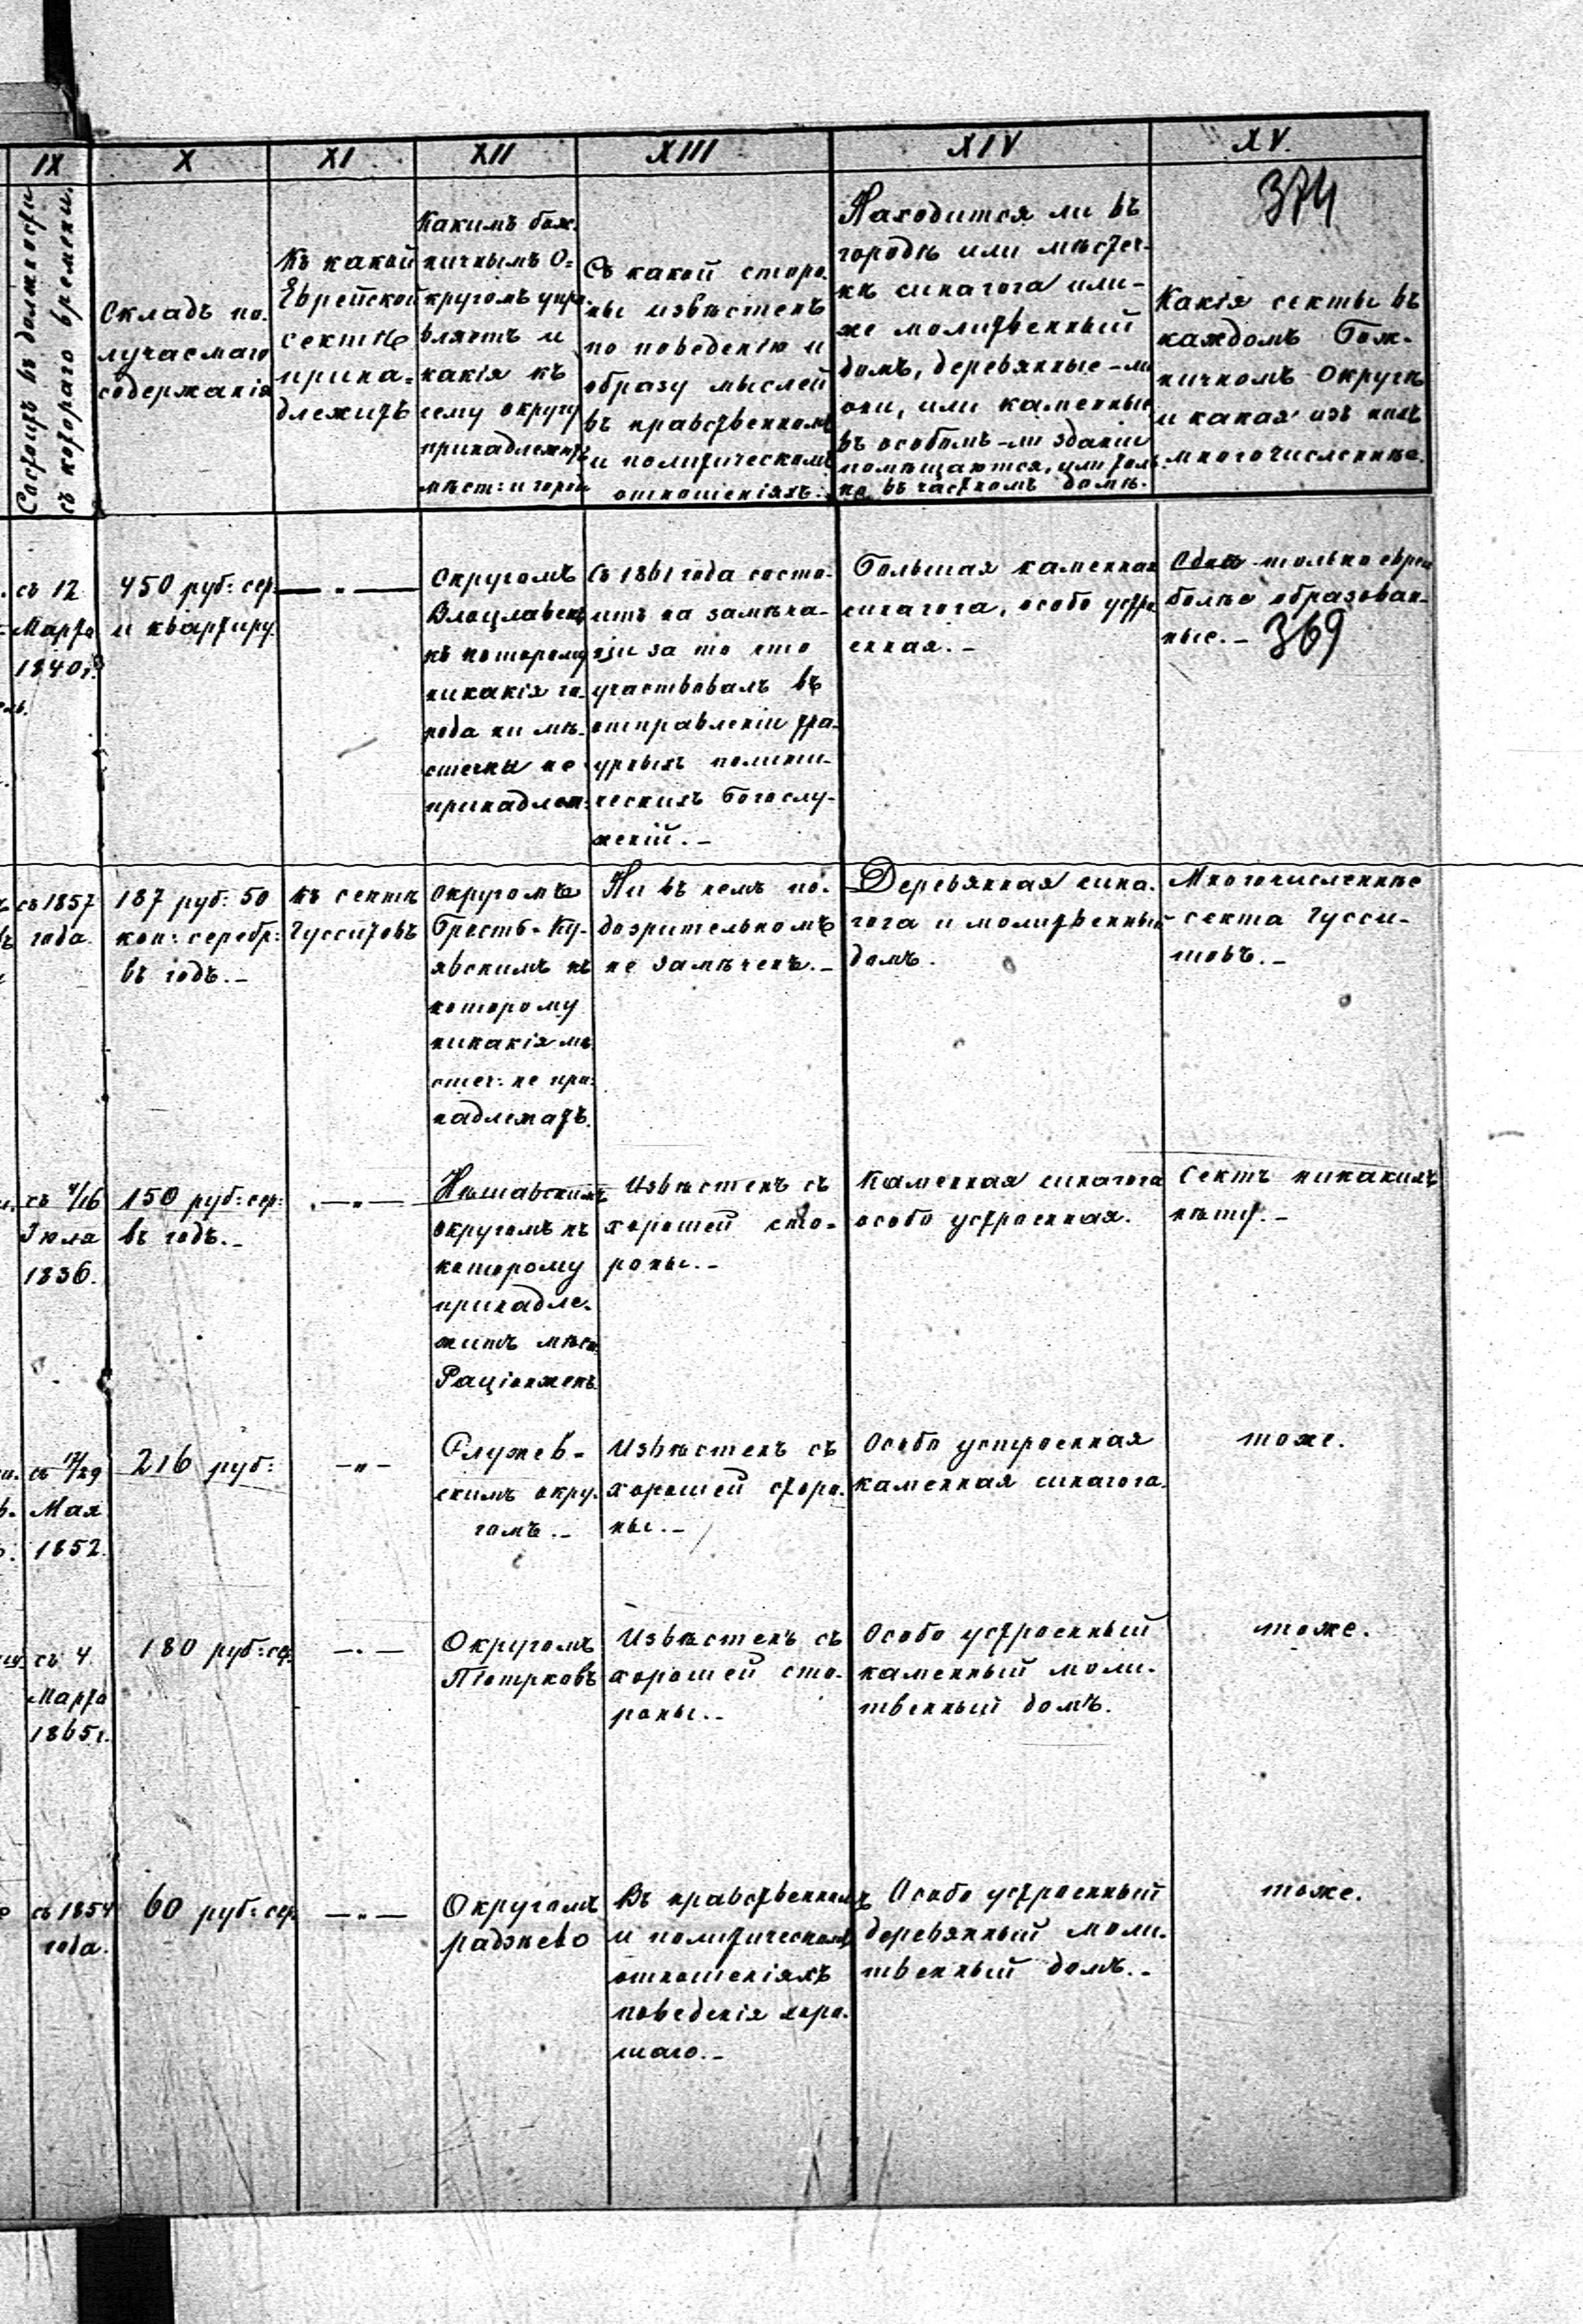 IX
X
XI
XII
XIII
XIV
XV.
Состоитъ въ должности
съ котораго времени.
Складъ по-
лучаемаго
содержанія
Къ какой
Еврейской
сектѣ
прина-
длежитъ
Какимъ бож-
ничнымъ О-
кругомъ упра-
вляетъ и
какія къ
сему округу
принадлежатъ
мѣст: и города
Съ какой сторо-
ны извѣстенъ
по поведенію и
образу мыслей
въ нравственномъ
и политическомъ
отношеніяхъ.
Находится ли въ
городѣ или мѣстеч-
кѣ синагога или-
же молитвенный
домъ, деревянные-ли
они, или каменные
въ особомъ-ли зданіи
помѣщаются, или толь-
ко въ частномъ домѣ.
374
Какія секты въ
каждомъ Бож-
ничномъ Округѣ
и какая изъ нихъ
многочисленнѣе.
съ 12
Марта
1840 г.
450 руб: сер:
и квартиру.
— " —
Округомъ
Влоцлавекъ
къ которому
никакія го-
рода ни мѣ-
стечки не
принадлеж:
Съ 1861 года состо-
итъ на замѣча-
ніи за то что
участвовалъ въ
отправленіи тра-
урныхъ полити-
ческихъ богослу-
женій. –
Большая каменная
синагога, особо устро-
енная. –
Одни только евреи
болѣе образован-
ные. – 369
съ 1857
года.
187 руб: 50
коп: серебр:
въ годъ. –
къ сектѣ
Гусситовъ
Округомъ
Брестъ-Ку-
явскимъ къ
которому
никакія мѣ
стеч: не при-
надлежатъ.
Ни въ чемъ по-
дозрительномъ
не замѣченъ. –
Деревянная сина-
гога и молитвенный
домъ.
Многочисленнѣе
секта Гусси-
товъ. –
съ 4/16
Іюля
1836.
150 руб: сер:
въ годъ. –
— " —
Нѣшавскимъ
округомъ къ
которому
принадле-
житъ мѣст:
Раціонжекъ
Извѣстенъ съ
хорошей сто-
роны. –
Каменная синагога
особо устроенная.
Сектъ никакихъ
нѣтъ. –
съ 17/29
Мая
1852.
216 руб:
— " —
Служев-
скимъ окру-
гомъ. –
Извѣстенъ съ
хорошей сторо-
ны. –
Особо устроенная
каменная синагога.
тоже.
съ 4
Марта
1865 г.
180 руб: сер:
— " —
Округомъ
Піотрковъ
Извѣстенъ съ
хорошей сто-
роны. –
Особо устроенный
каменный моли-
твенный домъ.
тоже.
съ 1854
года.
60 руб: сер:
— " —
Округомъ
радзѣево
Въ нравственномъ
и политическомъ
отношеніяхъ
поведенія хоро-
шаго. –
Особо устроенный
деревянный моли-
твенный домъ. –
тоже.